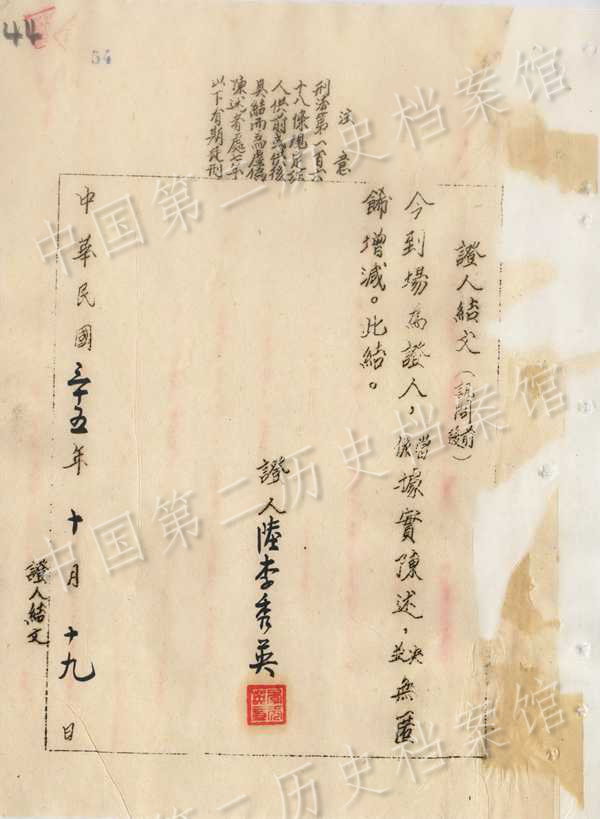 44
54
注意
刑法第一百六
十八條規定證
人供前或供後
具結而為虛偽
陳述者處七年
以下有期徒刑
證人結文(訊問前後)
今到場為證人,當係據實陳述,決並無匿
飾增減。此結。
證人陸李秀英
中華民國三十五年十月十九日
證人結文
中国第二历史档案馆
中国第二历史档案馆
中国第二历史档案馆